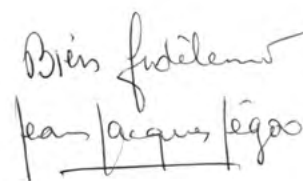 Bien fidèlement
Jean Jacques Jégou